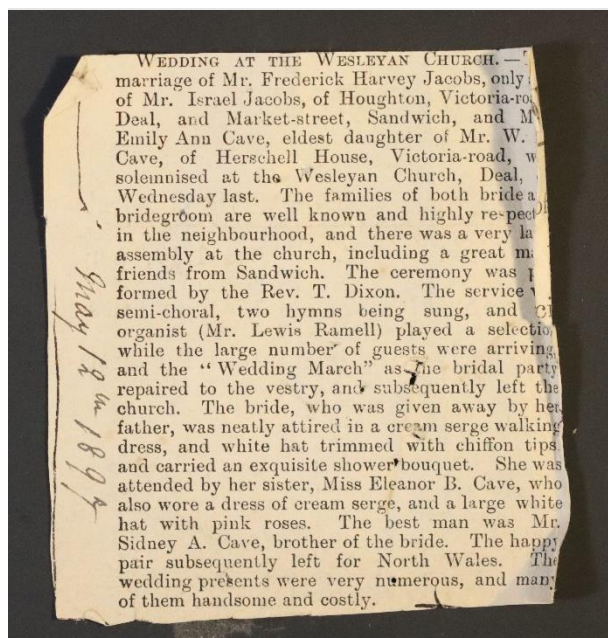 WEDDING AT THE WESLEYAN CHURCH.—
marriage of Mr. Frederick Harvey Jacobs, only
of Mr. Israel Jacobs, of Houghton, Victoria-
Deal, and Market-street, Sandwich, and
Emily Ann Cave, eldest daughter of Mr. W.
Cave, of Herschell House, Victoria-road,
solemnised at the Wesleyan Church, Deal,
Wednesday last. The families of both bride
bridegroom are well known and highly
in the neighbourhood, and there was a very
assembly at the church, including a great
friends from Sandwich. The ceremony was
formed by the Rev. T. Dixon. The service
semi-choral, two hymns being sung, and
organist (Mr. Lewis Ramell) played a
while the large number of guests were arriving,
and the "Wedding March" as the bridal party
repaired to the vestry, and subsequently left the
church. The bride, who was given away by her
father, was neatly attired in a cream serge walking
dress, and white hat trimmed with chiffon tips
and carried an exquisite shower bouquet. She was
attended by her sister, Miss Eleanor B. Cave, who
also wore a dress of cream serge, and a large white
hat with pink roses. The best man was Mr.
Sidney A. Cave, brother of the bride. The happy
pair subsequently left for North Wales. The
wedding presents were very numerous, and many
of them handsome and costly.
May 12th 1897